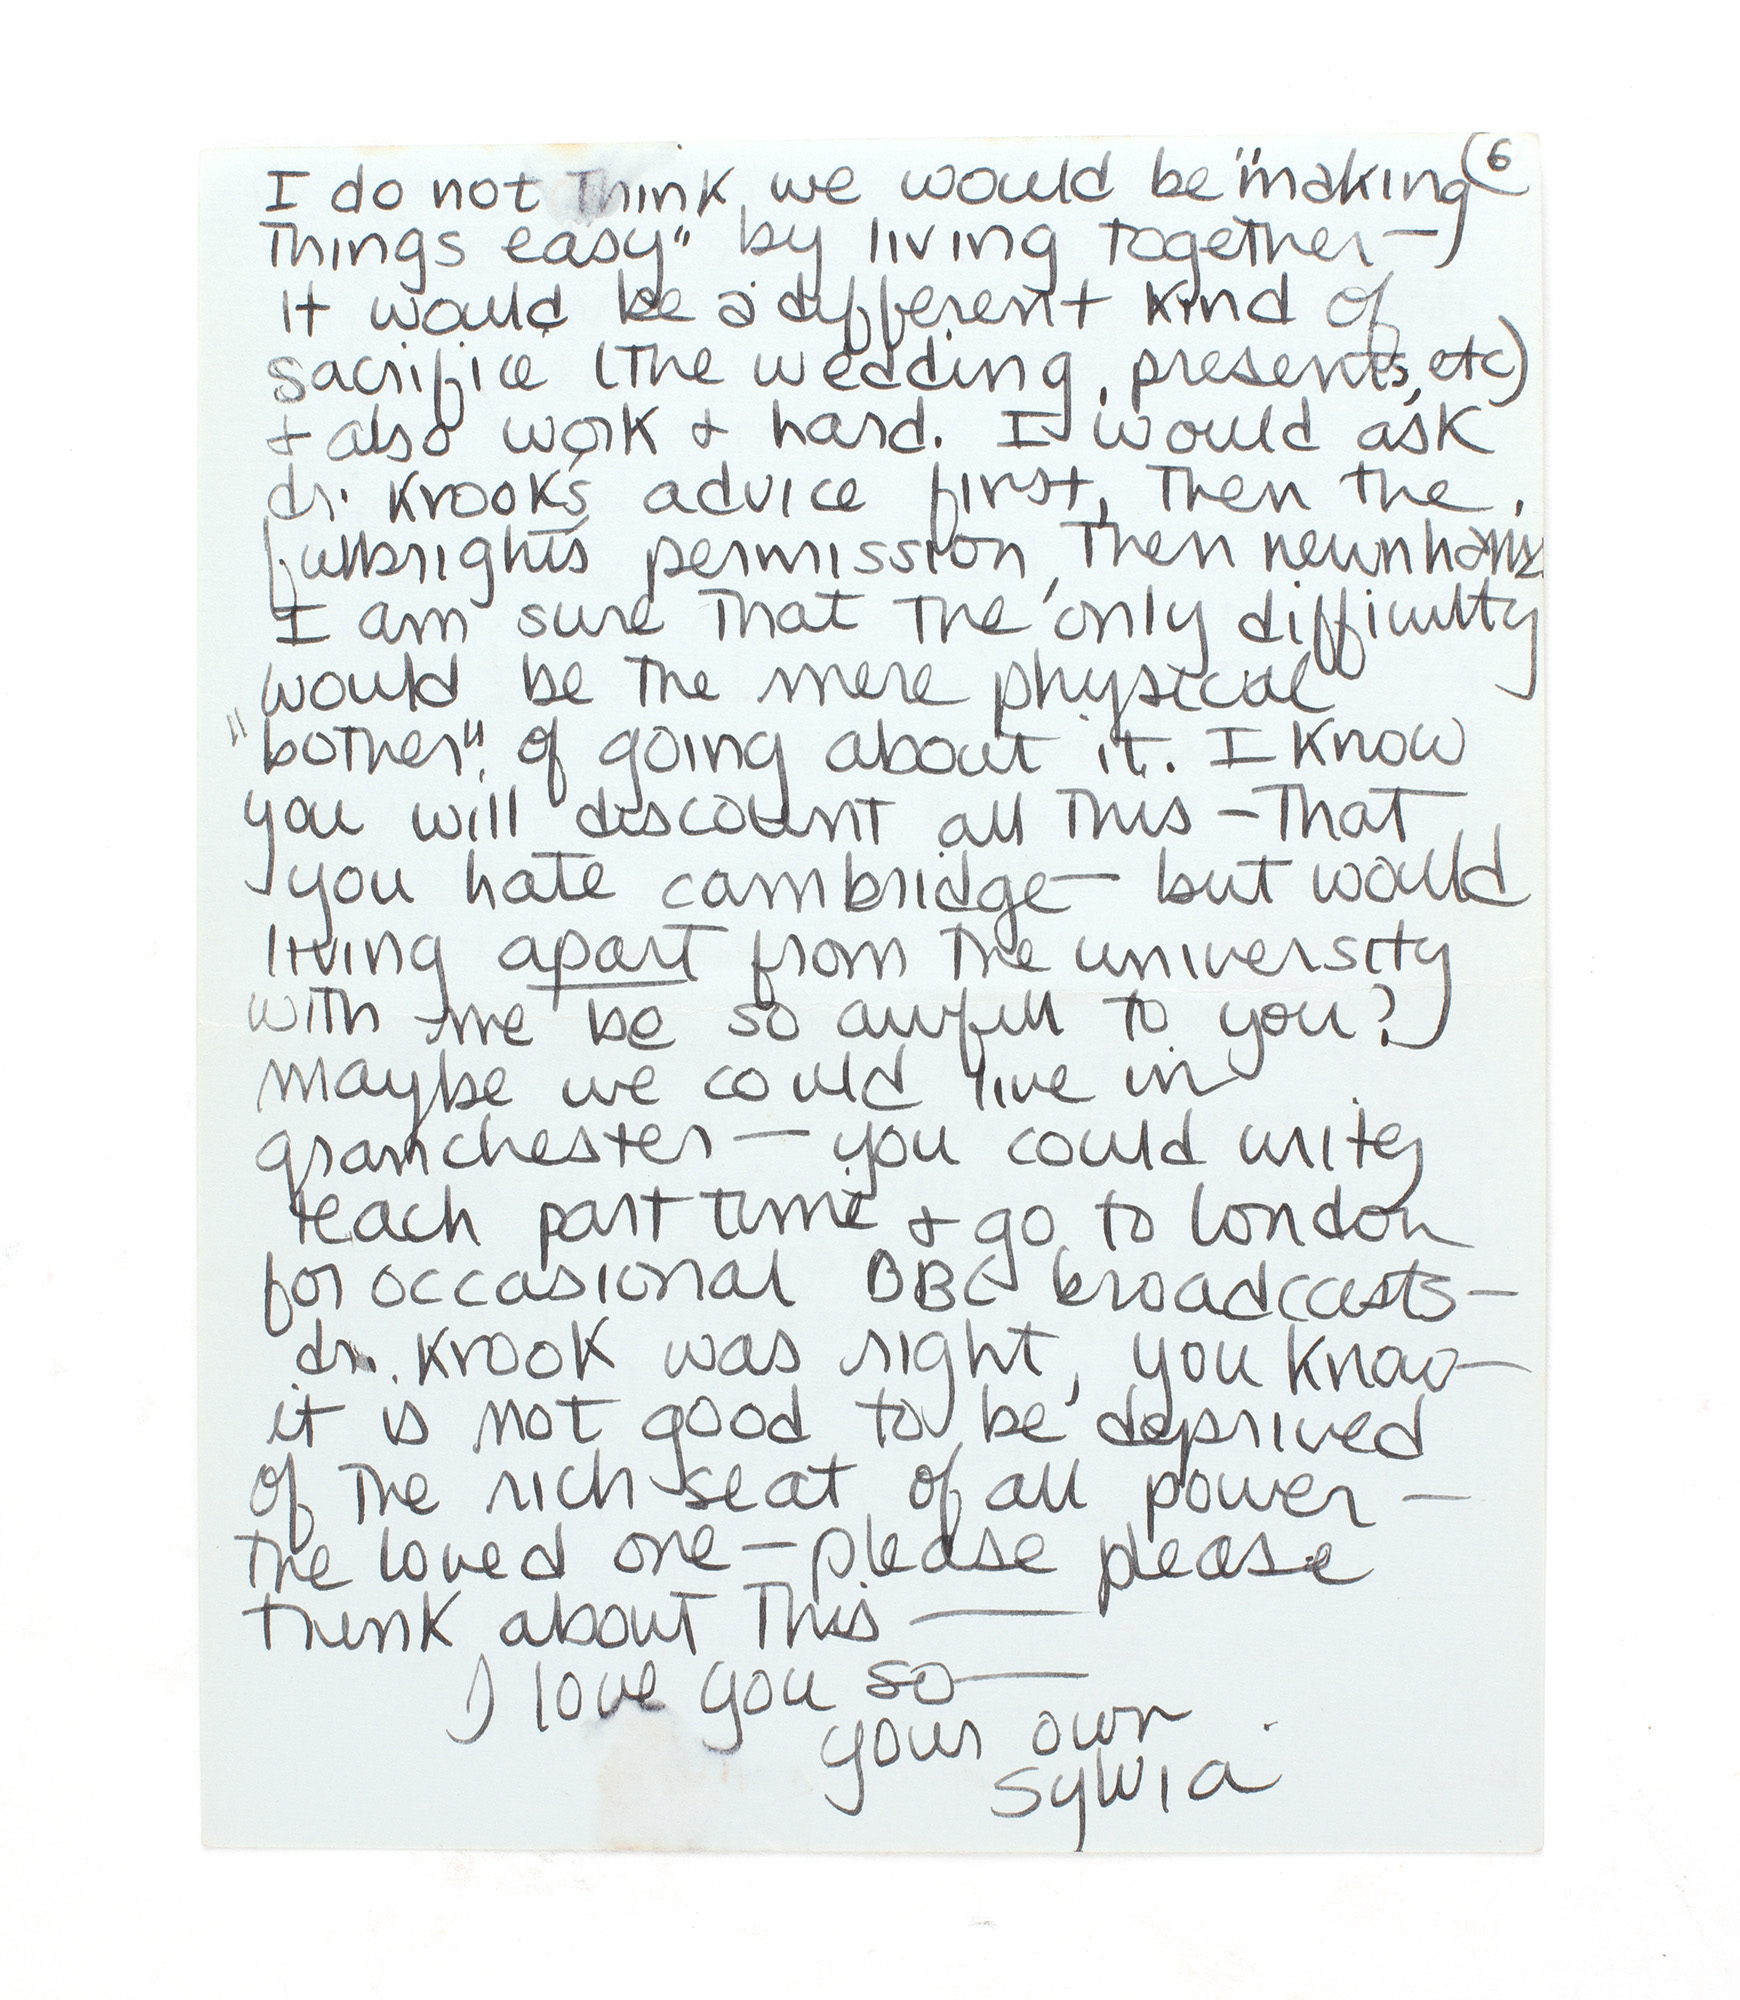 (6
I do not think we would be "making
things easy" by living together —
it would be a different kind of
sacrifice (the wedding, presents, etc)
+ also work + hard. I would ask
dr. Krook's advice first, then the
fulbright's permission, then newnham's.
I am sure that the only difficulty
would be the mere physical
"bother" of going about it. I know
you will discount all this — that
you hate cambridge — but would
living apart from the university
with me be so awful to you?
maybe we could live in
granchester — you could write,
teach part time + go to london
for occasional BBC broadcasts —
dr. Krook was right, you know —
it is not good to be deprived
of the rich seat of all power —
the loved one — please please
think about this —
I love you so —
your own
sylvia